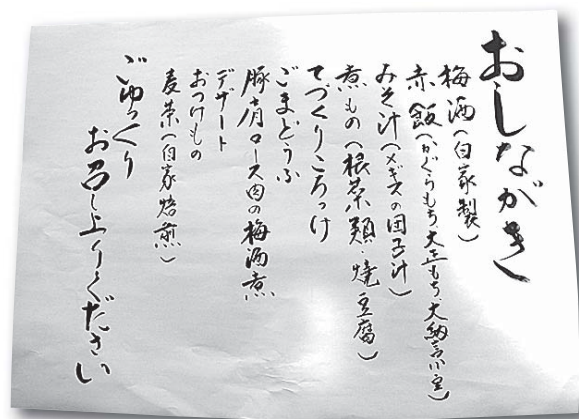 おしながき
梅酒(自家製)
赤飯(かぐらもち・大正もち・大納言小豆)
みそ汁(メギスの団子汁)
煮もの(根菜類・焼豆腐)
てづくりころっけ
ごまどうふ
豚肩ロース肉の梅酒煮
デザート
おつけもの
麦茶(自家焙煎)
ごゆっくり
お召し上りください